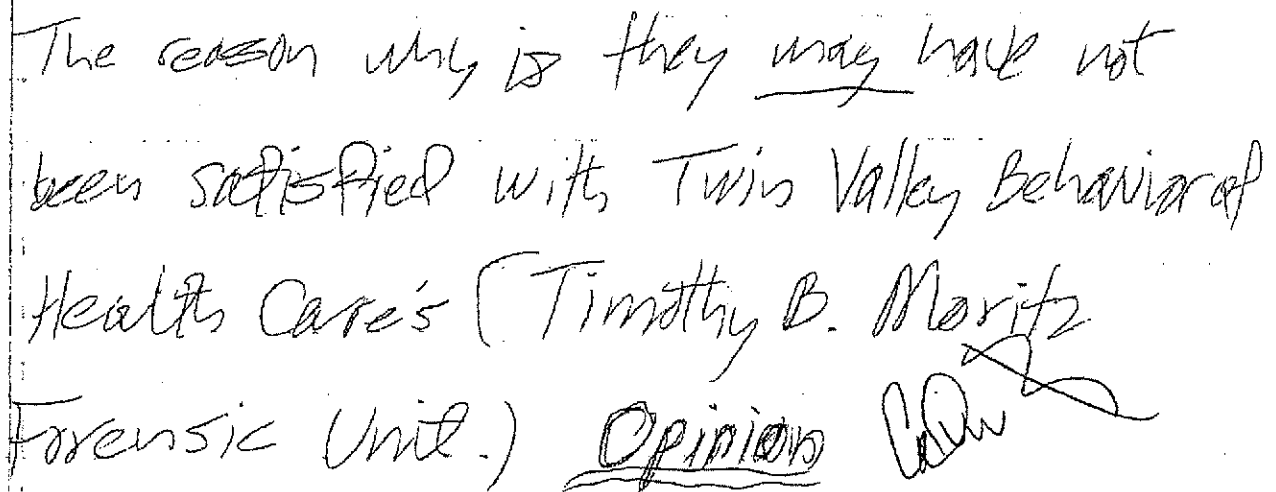 The reason why is they may have not
been satisfied with Twin Valley Behavioral
Health Care's (Timothy B. Moritz
Forensic Unit.) Opinion